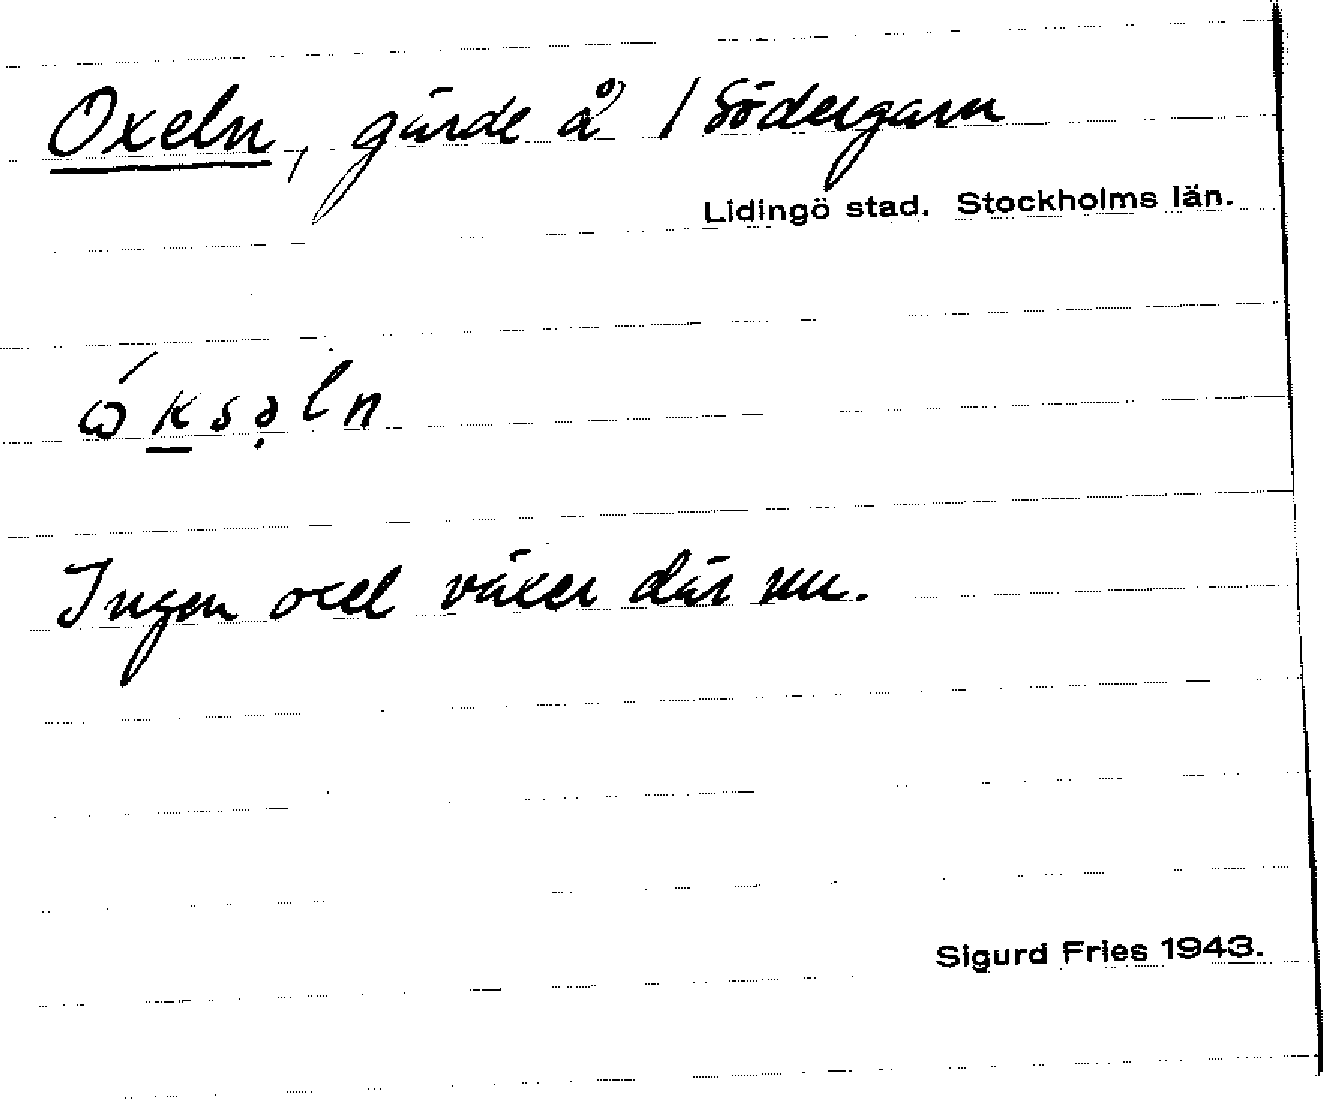 Oxeln, gärde å 1 Södergarn
Lidingö stad. Stockholms län.
ώksə̣ln
Ingen oxel växer där nu.
Sigurd Fries 1943.